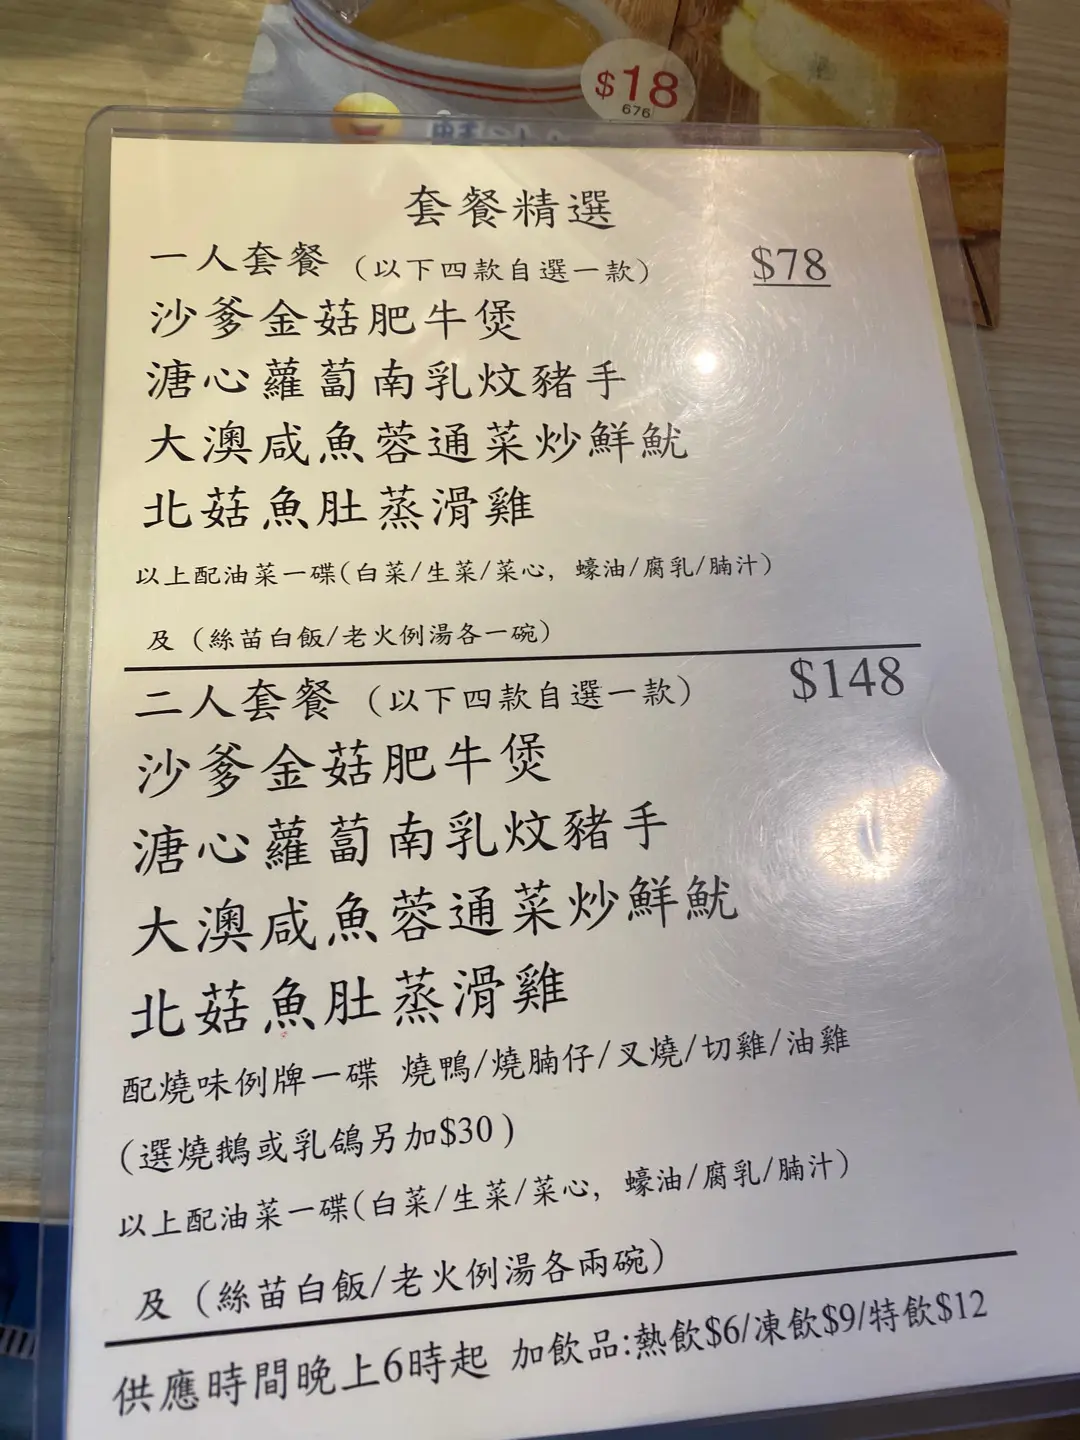 $18
676
套餐精選
一人套餐 (以下四款自選一款) $78
沙爹金菇肥牛煲
溏心蘿蔔南乳炆豬手
大澳咸魚蓉通菜炒鮮魷
北菇魚肚蒸滑雞
以上配油菜一碟(白菜/生菜/菜心, 蠔油/腐乳/腩汁)
及 (絲苗白飯/老火例湯各一碗)
二人套餐 (以下四款自選一款) $148
沙爹金菇肥牛煲
溏心蘿蔔南乳炆豬手
大澳咸魚蓉通菜炒鮮魷
北菇魚肚蒸滑雞
配燒味例牌一碟 燒鴨/燒腩仔/叉燒/切雞/油雞
(選燒鵝或乳鴿另加$30)
以上配油菜一碟(白菜/生菜/菜心, 蠔油/腐乳/腩汁)
及 (絲苗白飯/老火例湯各兩碗)
供應時間晚上6時起 加飲品:熱飲$6/凍飲$9/特飲$12